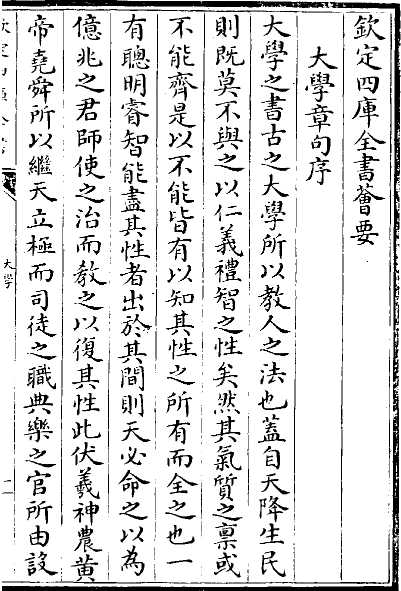 欽定四庫全書薈要
大學章句序
大學之書古之大學所以教人之法也蓋自天降生民
則既莫不與之以仁義禮智之性矣然其氣質之稟或
不能齊是以不能皆有以知其性之所有而全之也一
有聰明睿智能盡其性者出於其間則天必命之以為
億兆之君師使之治而教之以復其性此伏羲神農黃
帝堯舜所以繼天立極而司徒之職典樂之官所由設
大學